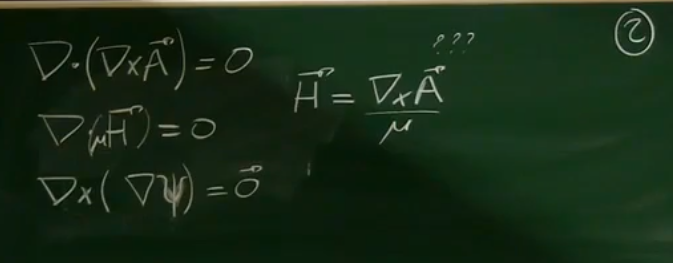 ② 
∇·(∇×A⃗) = 0
∇(μH⃗) = 0
∇×(∇ψ) = 0⃗
???
H⃗ = ∇×A⃗ / μ